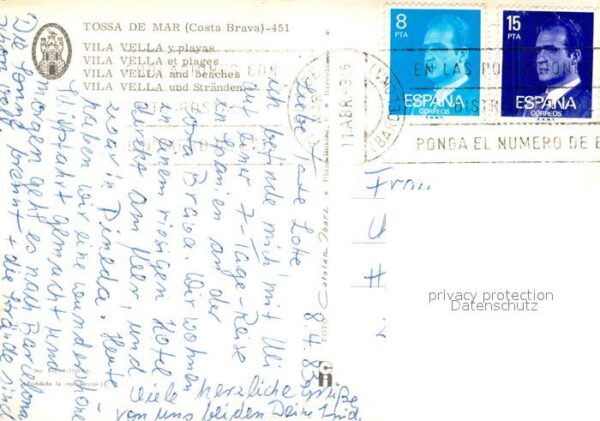 TOSSA DE MAR (Costa Brava)-451
VILA VELLA y playas
VILA VELLA et plages
VILA VELLA and beaches
VILA VELLA und Stränden
8
PTA
ESPAÑA
CORREOS
15
PTA
ESPAÑA
CORREOS
11 ABR
EN LAS
PONGA EL NUMERO DE
8.4.83
Liebe Tante Lotte
ich befinde mich mit Uli
auf einer 7-Tage-Reise
in Spanien an der
Costa Brava. Wir wohnen
in einem riesigen Hotel
direkt am Meer, und
zwar in Pineda. Heute
haben wir eine wunderschöne
Schiffahrt gemacht und
morgen geht es nach Barcelona.
Die Sonne brennt + die Strände sind
Viele herzliche Grüße
von uns beiden Deine
Frau
FOTO Catalan Ibarz
privacy protection
Datenschutz